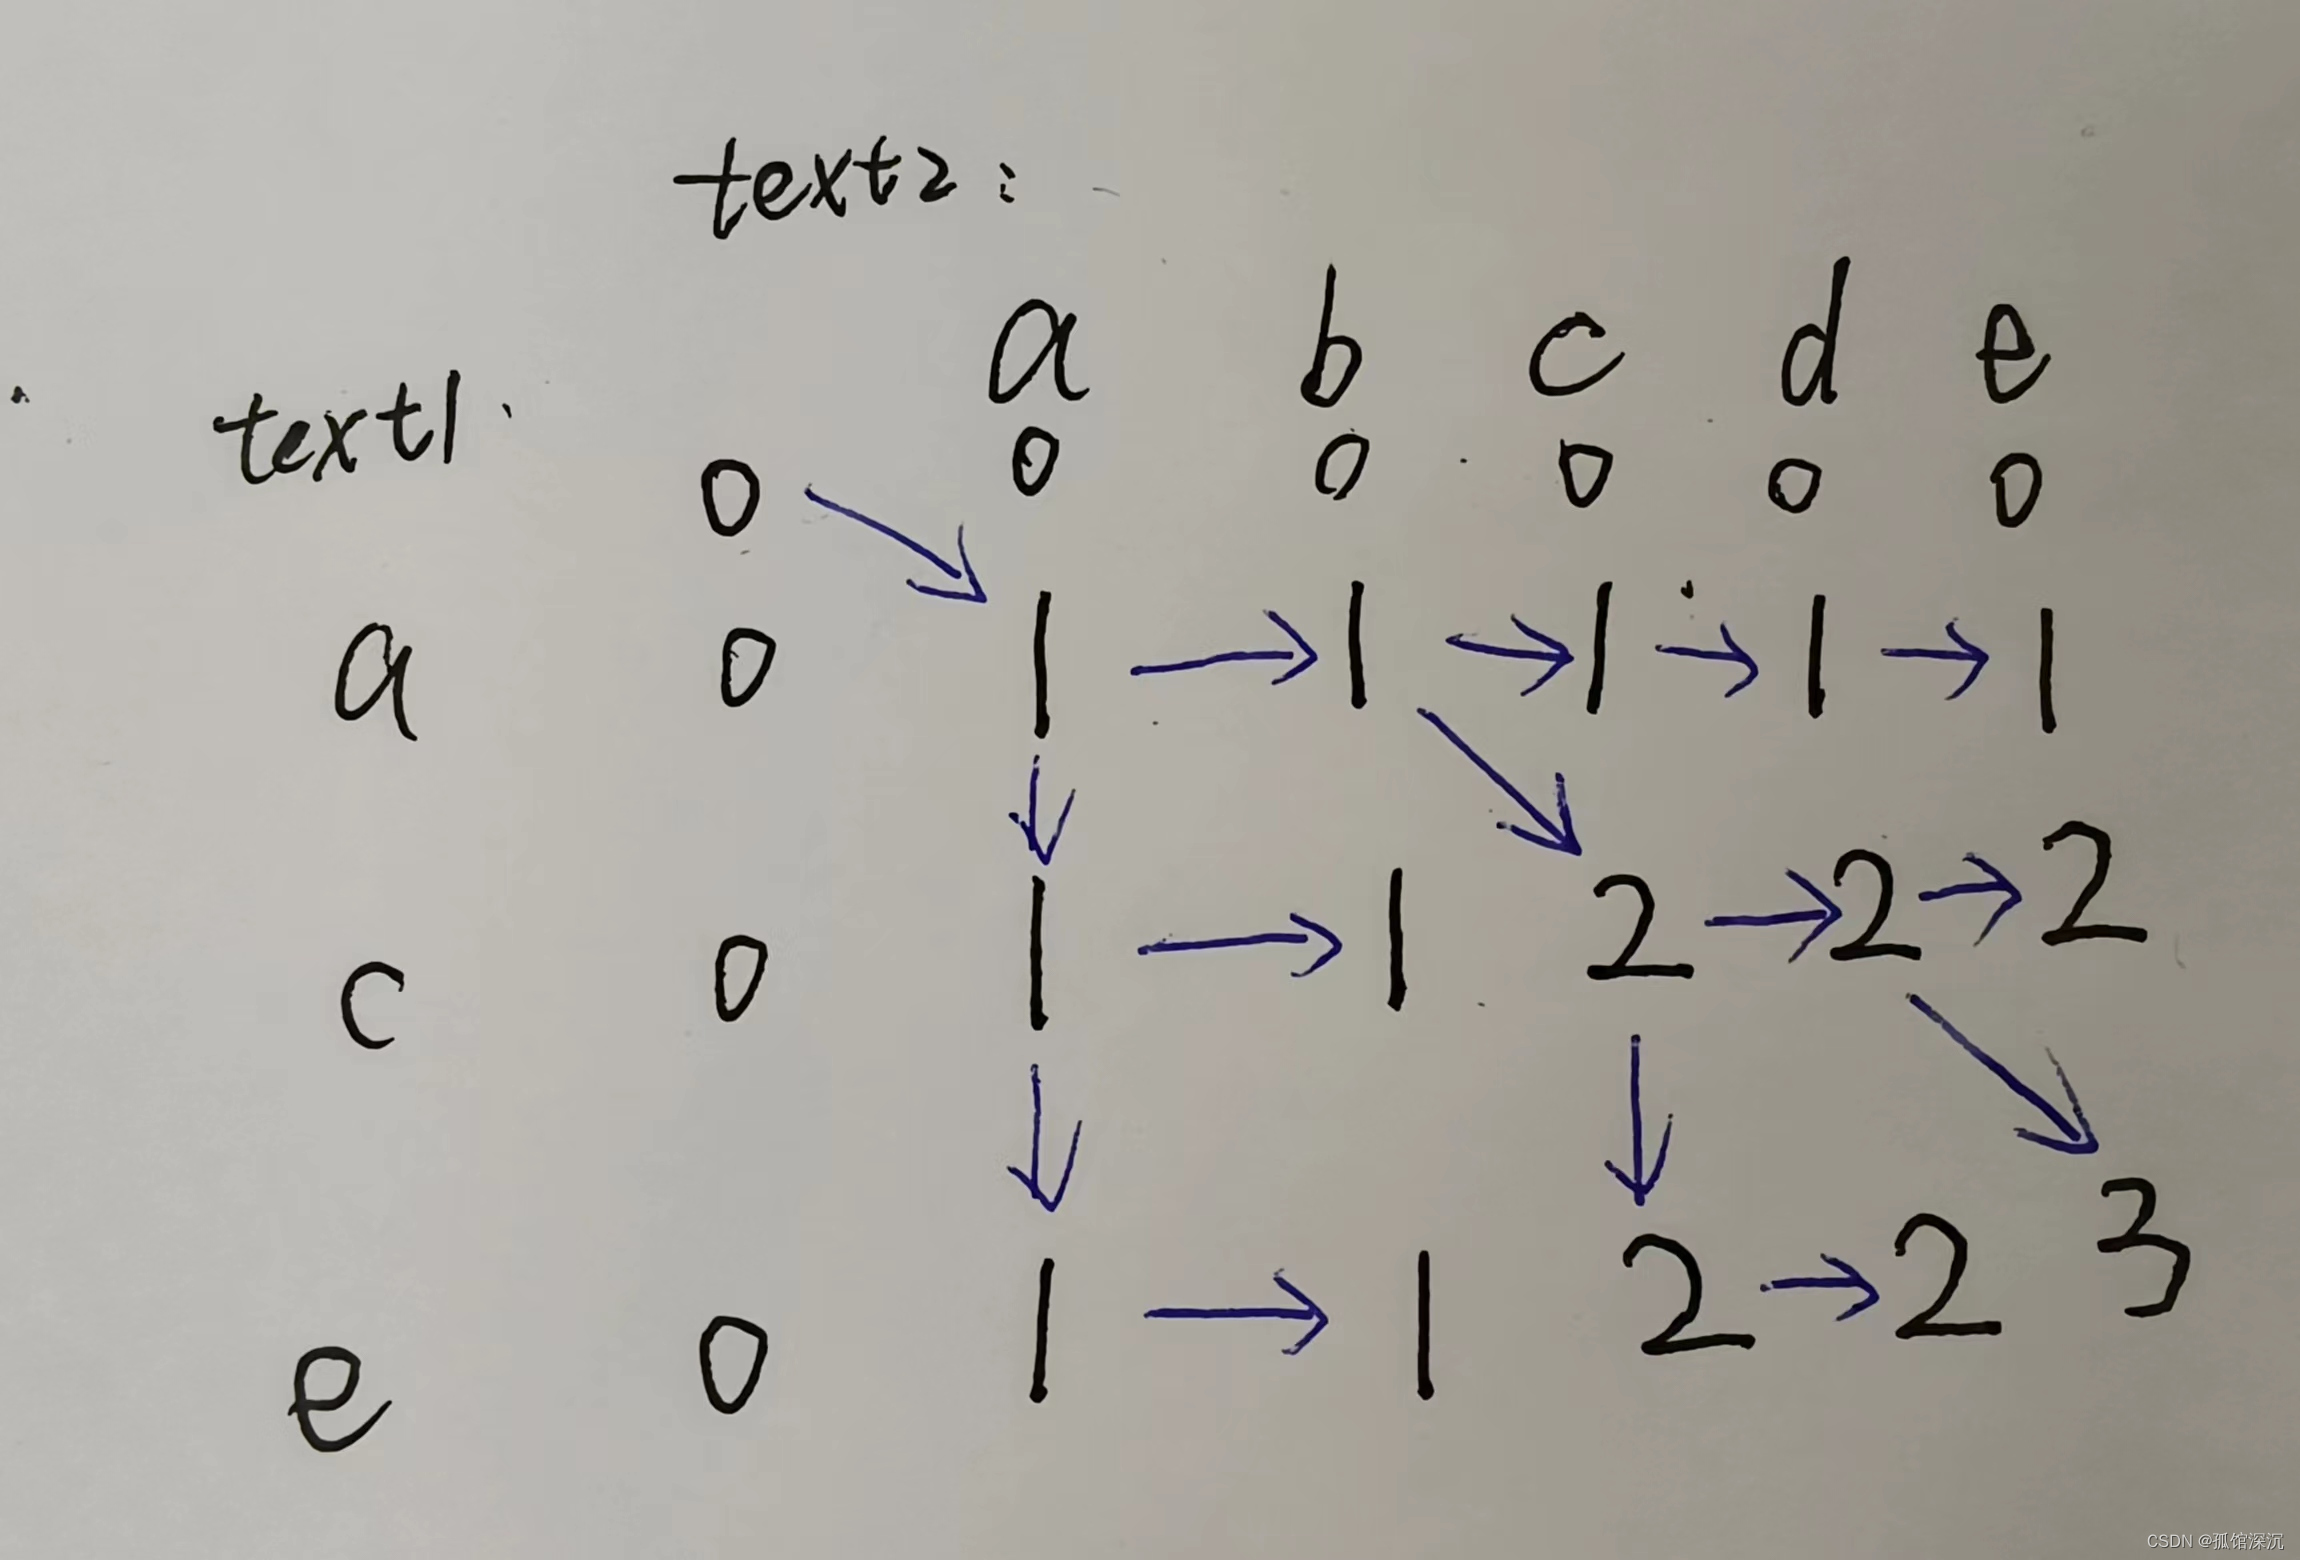 text2:
a b c d e
text1:
0 0 0 0 0 0
a 0 1 → 1 → 1 → 1 → 1
c 0 1 → 1 2 → 2 → 2
e 0 1 → 1 2 → 2 3
CSDN @孤馆深沉